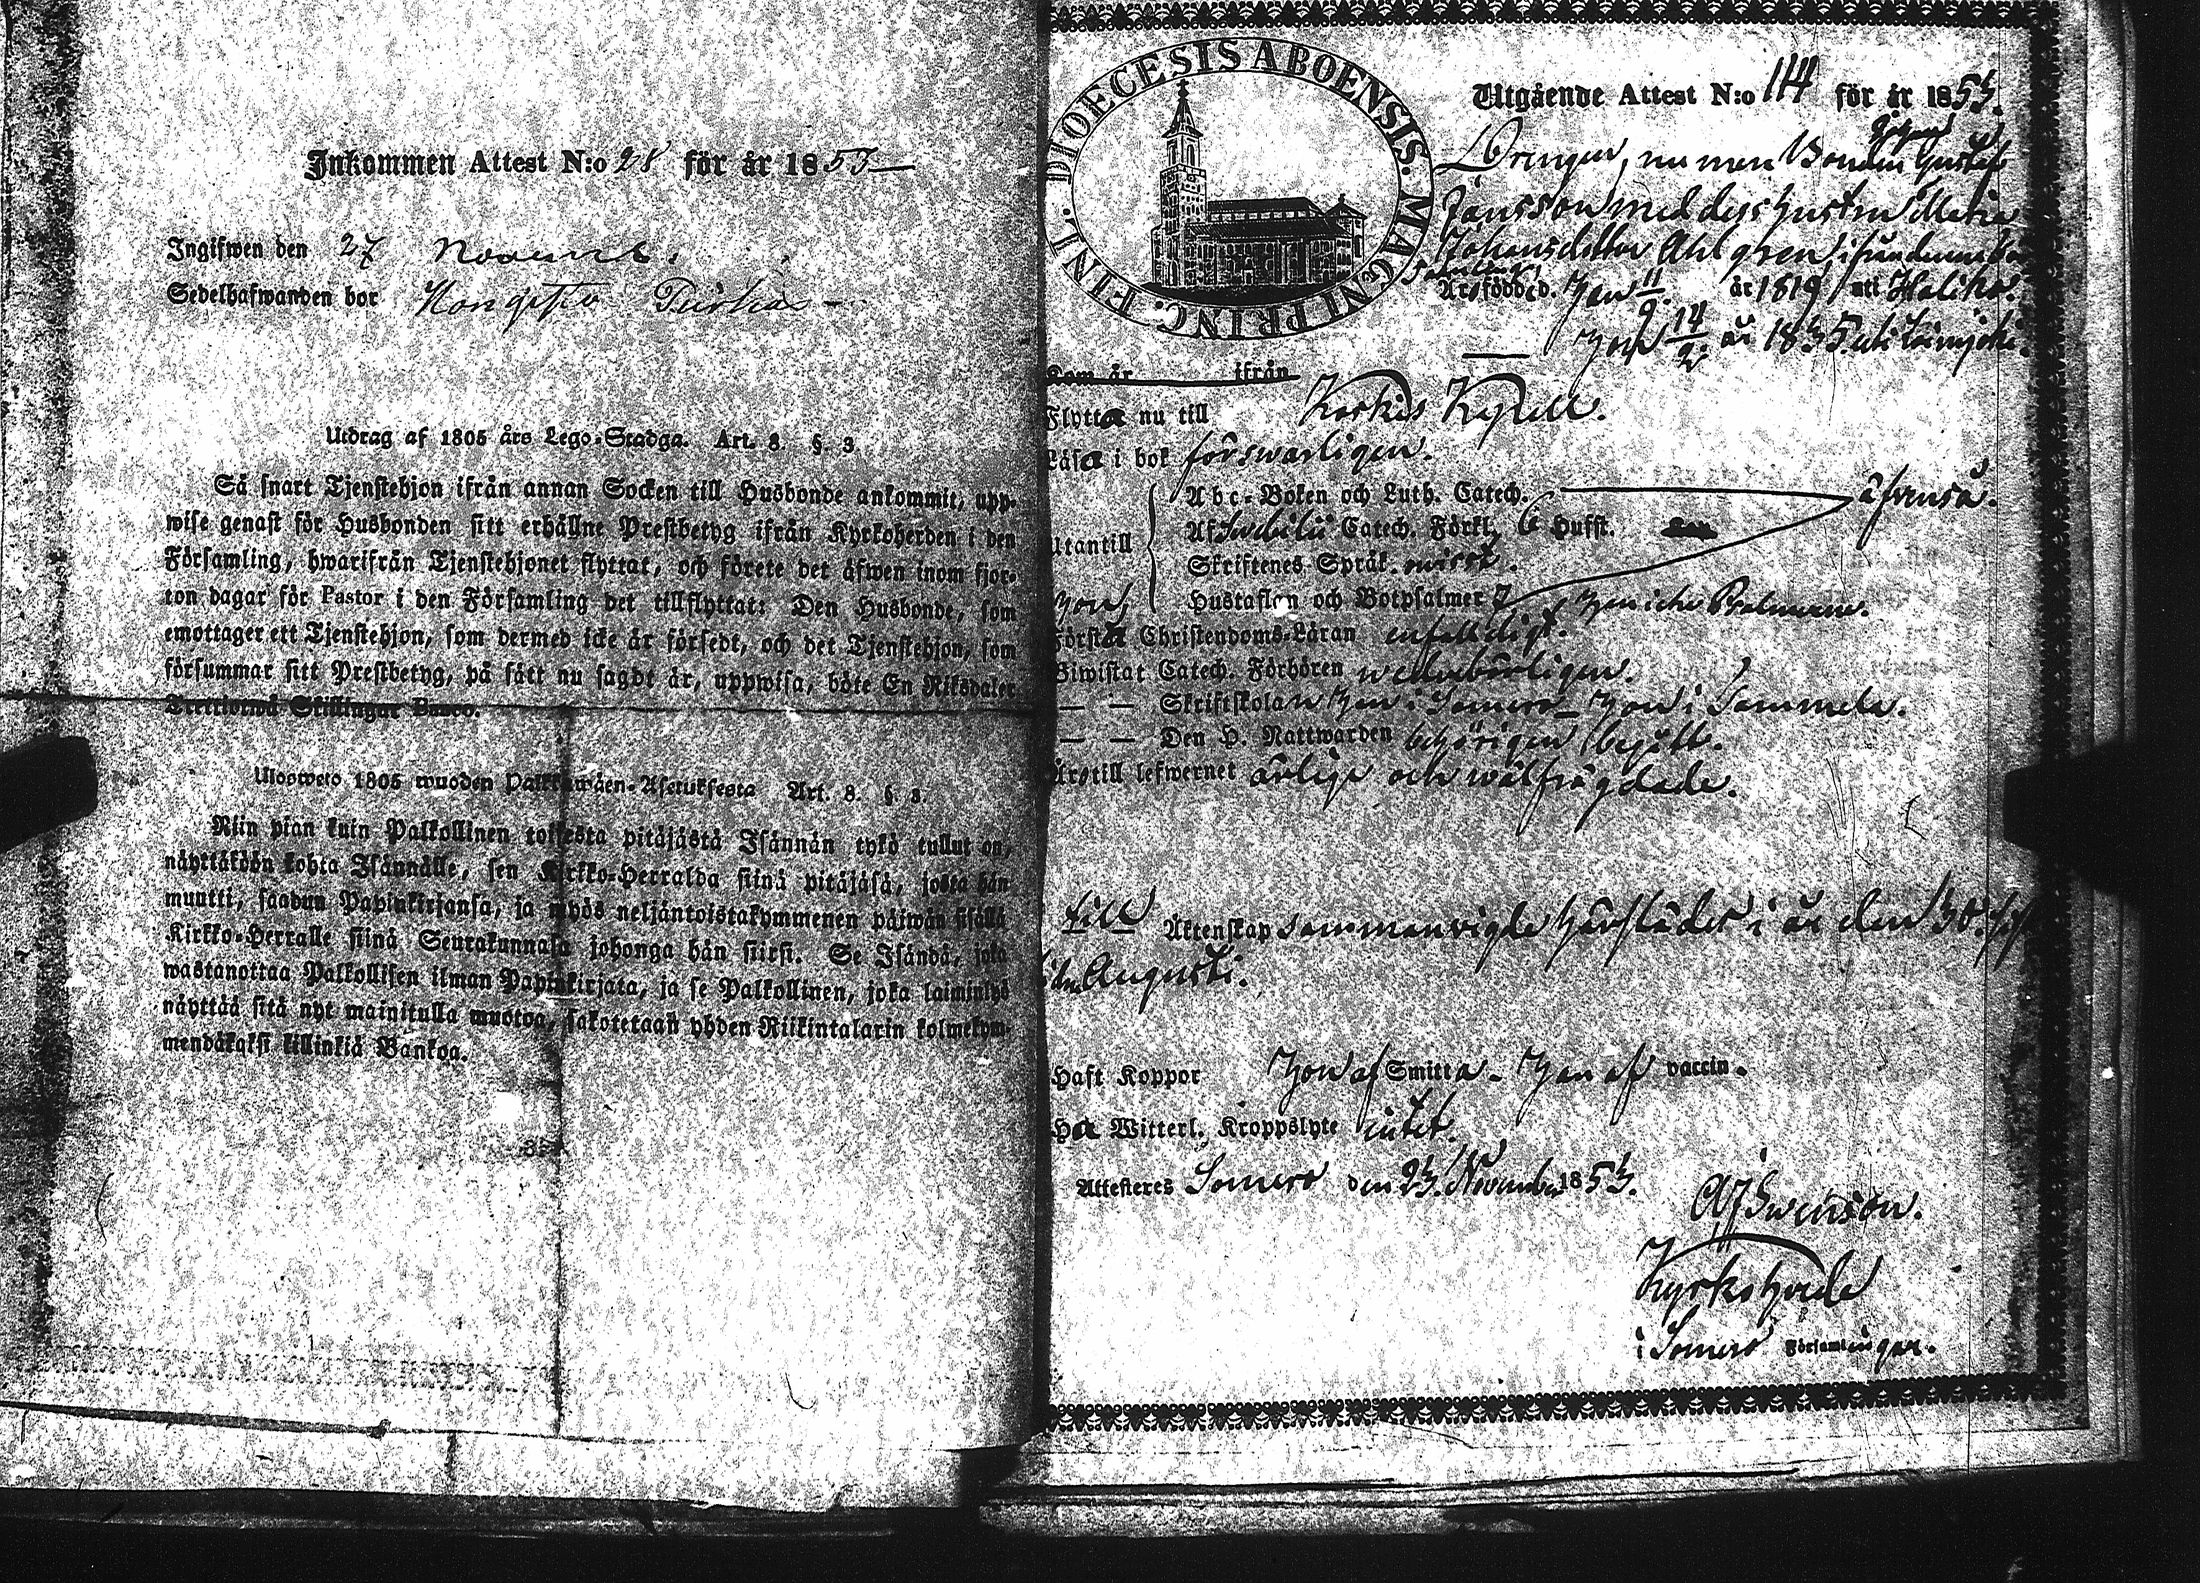 Inkommen Attest N:o 28 för år 1853
Ingifwen den 27 Novemb.
Sedelhafwanden bor
Utdrag af 1805 års Lego-Stadga. Art. 8 §. 3.
Så snart Tjenstehjon ifrån annan Socken till Husbonde ankommit, upp-
wise genast för Husbonden sitt erhållne Prestbetyg ifrån Kyrkoherden i den
Församling, hwarifrån Tjenstehjonet flyttat, och förete det äfwen inom fjor-
ton dagar för Pastor i den Församling det tillflyttat: Den Husbonde, som
emottager ett Tjenstehjon, som dermed icke är försedt, och det Tjenstehjon, som
försummar sitt Prestbetyg, på sätt nu sagdt är, uppwisa, böte En Riksdaler
Trettiotwå Skillingar Banco.
Ulosweto 1805 wuoden Palkkawäen-Asetuksesta Art. 8. § 3.
Niin pian kuin Palkollinen toisesta pitäjästä Isännän tykö tullut on,
näyttäköön kohta Isännälle, sen Kirkko-Herralda siinä pitäjäsä, josta hän
muutti, saadun Papinkirjansa, ja myös neljäntoistakymmenen päiwän sisällä
Kirkko-Herralle siinä Seurakunnasa johonga hän siirsi. Se Isändä, joka
wastanottaa Palkollisen ilman Papinkirjata, ja se Palkollinen, joka laiminlyö
näyttää sitä nyt mainitulla muotoa, sakotetaan yhden Riikintalarin kolmekym-
mendäkaksi killinkiä Bankoa.
DIOECESIS ABOENSIS. MAGNI PRINC. FINL.
Utgående Attest N:o 114 för år 1853.
Drengen, nu mera Bonden Johan Gustaf
Jansson med dess hustru Maria
Johansdotter Ahlgren, ifrån denna
Församling
Äro födde d. Han 11/9 år 1819 uti Haliko.
Hon 14/2 år 1835 uti Loimijoki.
Kom år ifrån
Flytta nu till Koskis Kapell.
Läsa i bok förswarligen.
Utantill
Abc-Boken och Luth. Catech. äfvenså.
Af Svebilii Catech. Förkl. 6 Hufst.
Skriftenes Språk. misst.
Hustaflan och Botpsalmer 7, Han icke Psalmerne.
Hon,
Förstå Christendoms-Läran enfaldigt.
Biwistat Catech. Förhören wederbörligen.
— — Skriftskolan Han i Somero — Hon i Sammela.
— — Den H. Nattwarden behörigen begått.
Äro till lefwernet ärlige och wälfrägdade.
till Äktenskap sammanvigde härstädes i år den 30
Augusti.
Haft Koppor Hon af Smitta. Han af vaccin.
Ha Witterl. Kroppslyte intet.
Attesteres Somero den 23 November 1853.
Swenson.
Kyrkoherde
i Somero Församlingar.